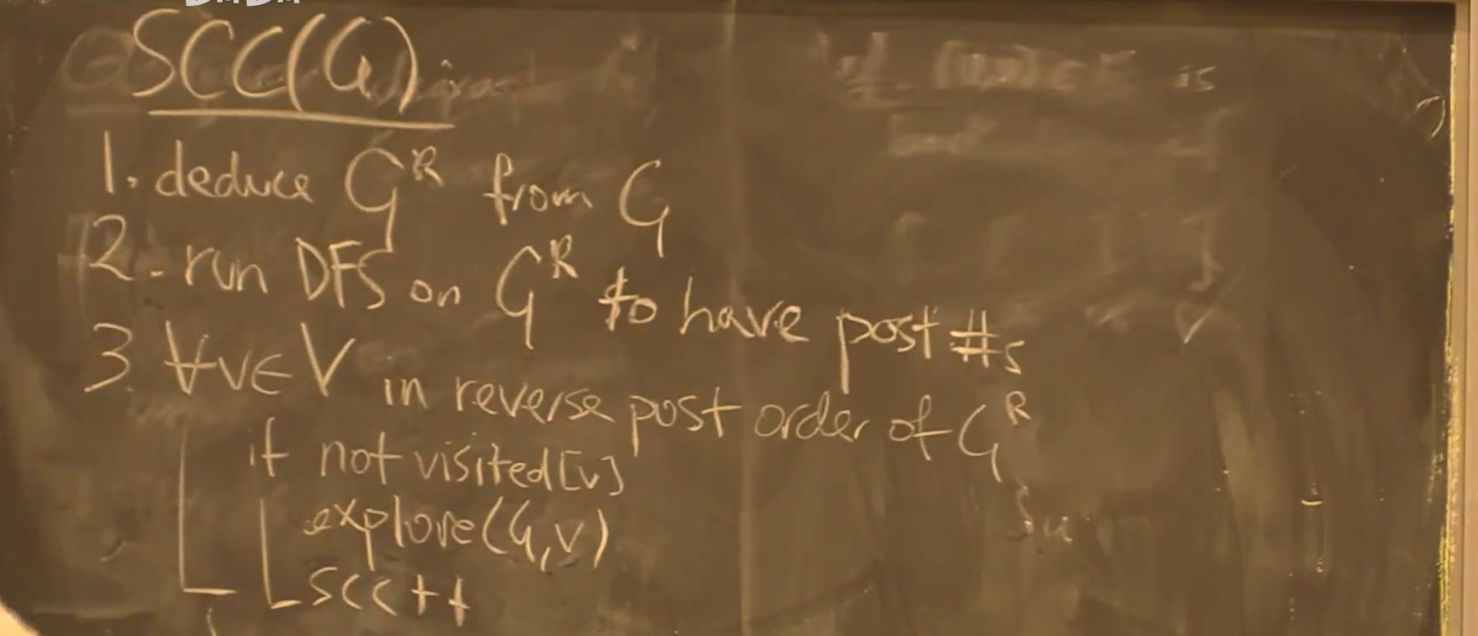 SCC(G)
1. deduce G^R from G
2. run DFS on G^R to have post #s
3. ∀v∈V in reverse post order of G^R
if not visited[v]
explore(G,v)
SCC++